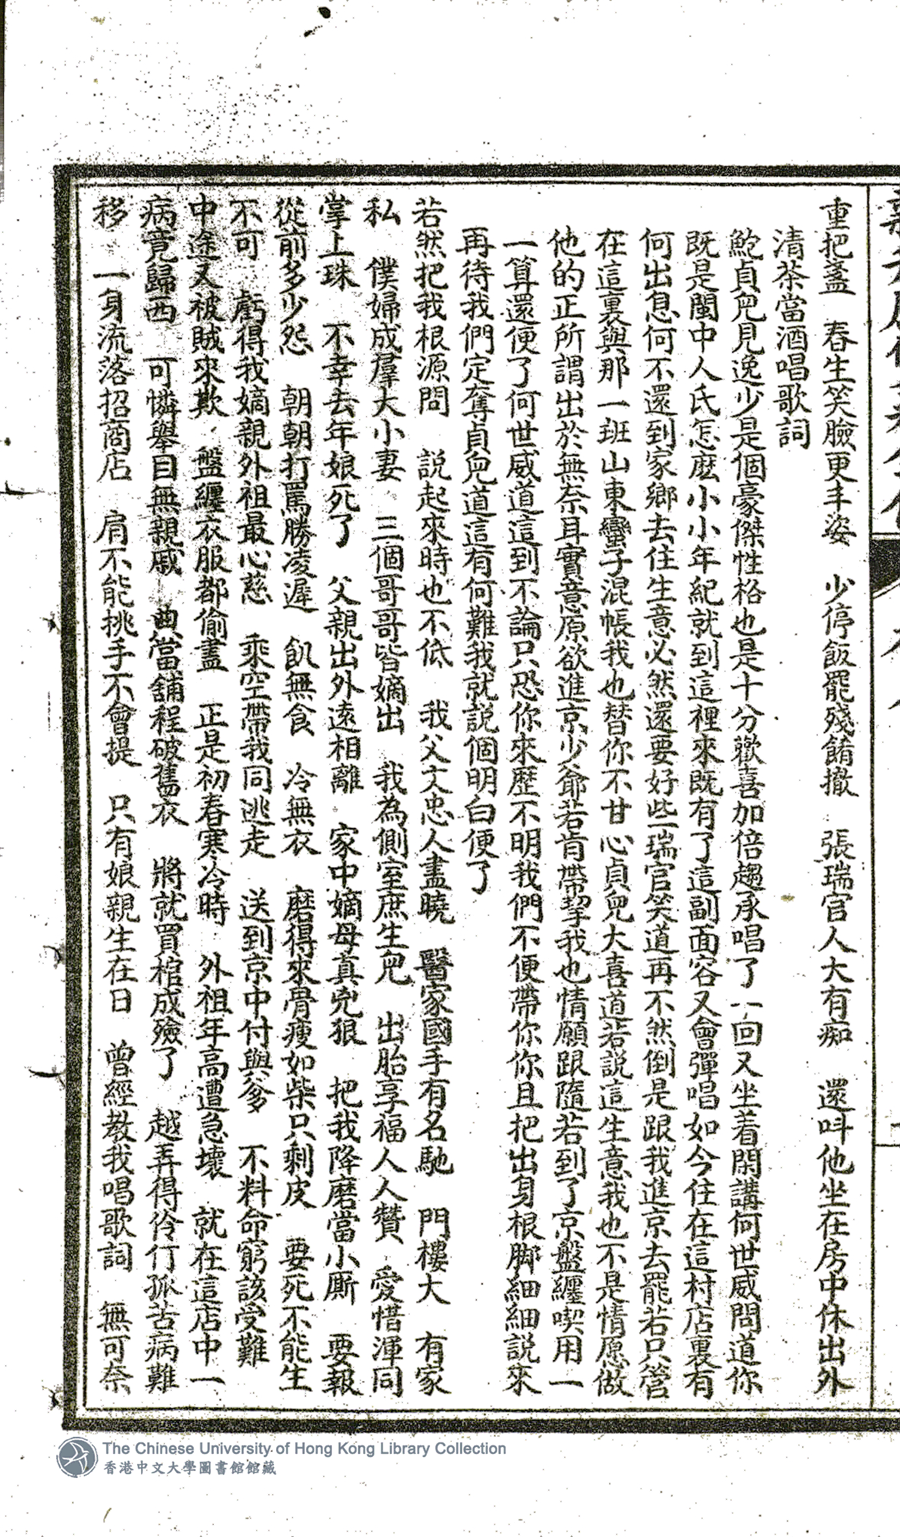 重把盞　春生笑臉更丰姿　少停飯罷殘餚撤　張瑞官人大有痴　還叫他坐在房中休出外
清茶當酒唱歌詞
鮀貞兒見逸少是個豪傑性格也是十分歡喜加倍趨承唱了一回又坐着閑講何世威問道你
既是閩中人氏怎麽小小年紀就到這裡來既有了這副面容又會彈唱如今住在這村店裏有
何出息何不還到家鄉去住生意必然還要好些瑞官笑道再不然倒是跟我進京去罷若只管
在這裏與那一班山東蠻子混帳我也替你不甘心貞兒大喜道若說這生意我也不是情愿做
他的正所謂出於無奈耳實意原欲進京少爺若肯帶挈我也情願跟隨若到了京盤纏喫用一
一算還便了何世威道這到不論只恐你來歷不明我們不便帶你你且把出身根脚細細說來
再待我們定奪貞兒道這有何難我就說個明白便了
若然把我根源問　說起來時也不低　我父文忠人盡曉　醫家國手有名馳　門樓大　有家
私　僕婦成羣大小妻　三個哥哥皆嫡出　我為側室庶生兒　出胎享福人人贊　愛惜渾同
掌上珠　不幸去年娘死了　父親出外遠相離　家中嫡母真兇狠　把我降磨當小厮　要報
從前多少怨　朝朝打罵勝凌遲　飢無食　冷無衣　磨得來骨瘦如柴只剩皮　要死不能生
不可　虧得我嫡親外祖最心慈　乘空帶我同逃走　送到京中付與爹　不料命窮該受難
中途又被賊來欺　盤纏衣服都偷盡　正是初春寒冷時　外祖年高遭急壞　就在這店中一
病竟歸西　可憐舉目無親戚　典當舖程破舊衣　將就買棺成殮了　越弄得伶仃孤苦病難
移　一身流落招商店　肩不能挑手不會提　只有娘親生在日　曾經教我唱歌詞　無可奈
The Chinese University of Hong Kong Library Collection
香港中文大學圖書館館藏